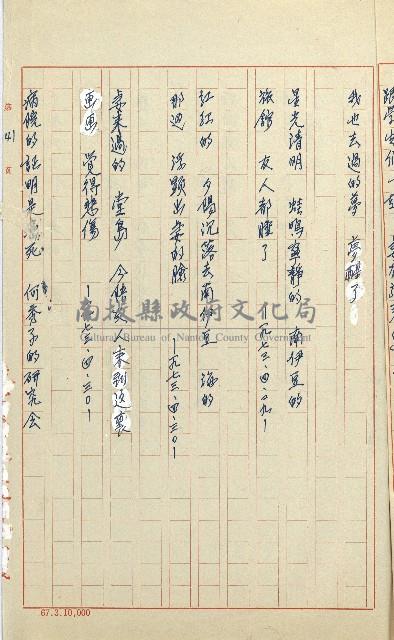 我也去過的夢　夢醒了
星光清明　蛙鳴寧靜的　南伊豆的
旅館　友人都睡了　—一九七三・四・二九—
紅紅的　夕陽沉落去南伊豆　海的
那边　浮顯出妻的臉　—一九七三・四・三〇—
妻來過的　堂島　今晚一人來到這裏
畫畫　覺得悲傷　—一九七三・四・三〇—
病院的証明是死　何秀子的研究会
第 41 頁
南投縣政府文化局
Cultural Bureau of Nantou County Government
67.3.10,000